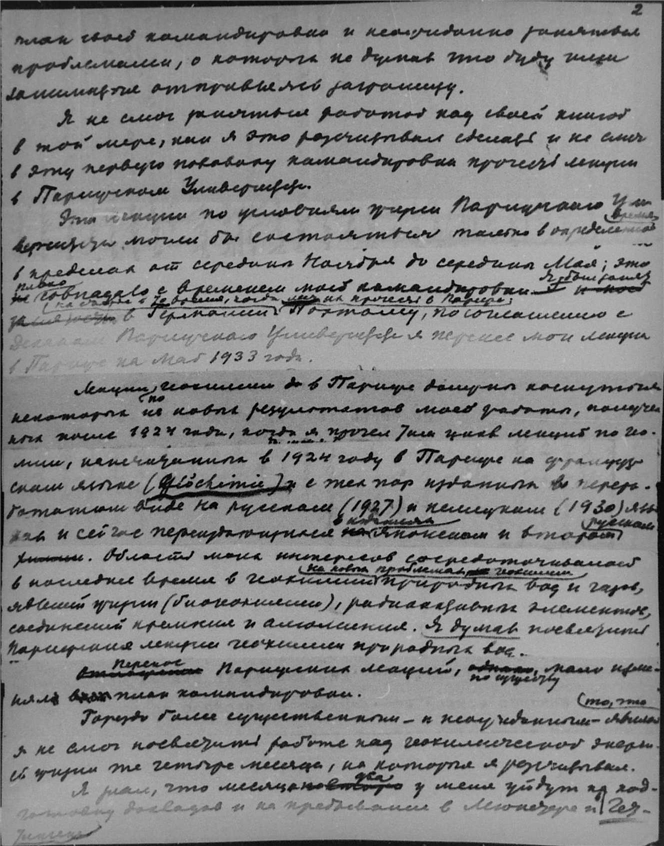 2
план своей командировки и неожиданно заняться
проблемами, о которых не думал что буду ими
заниматься отправляясь заграницу.
Я не смог заняться работой над своей книгой
в той мере, как я это рассчитывал сделать и не смог
в эту первую половину командировки прочесть лекции
в Парижском Университете.
Эти лекции по условиям жизни Парижского Уни
верситета могли бы состояться только в определенное время
в пределах от середины Ноября до середины Мая; это
совпадало с временем моей командировки
в Германии. Поэтому, по соглашению с
деканом Парижского Университета я перенес мои лекции
в Париже на Май 1933 года.
Лекции по геохимии в Париже должны коснуться
некоторых новых результатов моей работы, получен
ных после 1924 года, когда я прочел там цикл лекций по гео
химии, напечатанных в 1924 году в Париже на француз
ском языке (Géochimie) и с тех пор изданных в перера
ботанном виде на русском (1927) и немецком (1930) язы
ках и сейчас переиздающихся на Японском и втором русском
изданиях. Область моих интересов сосредоточивалась
в последнее время на новых проблемах геохимии
в геохимии природных вод и газов,
явлений жизни (биогеохимии), радиоактивных элементов,
соединений кремния и алюминия. Я думаю посвятить
Парижские лекции геохимии природных вод.
Перенос Парижских лекций, мало изме-
нял по существу план командировки.
Гораздо более существенным - и неожиданным - явилось то, что
я не смог посвятить работе над геохимической энерги
ей жизни те четыре месяца, на которые я рассчитывал.
Я знал, что месяца два у меня уйдут на под-
готовку докладов и на пребывание в Мюнстере и Гёт-
тингене